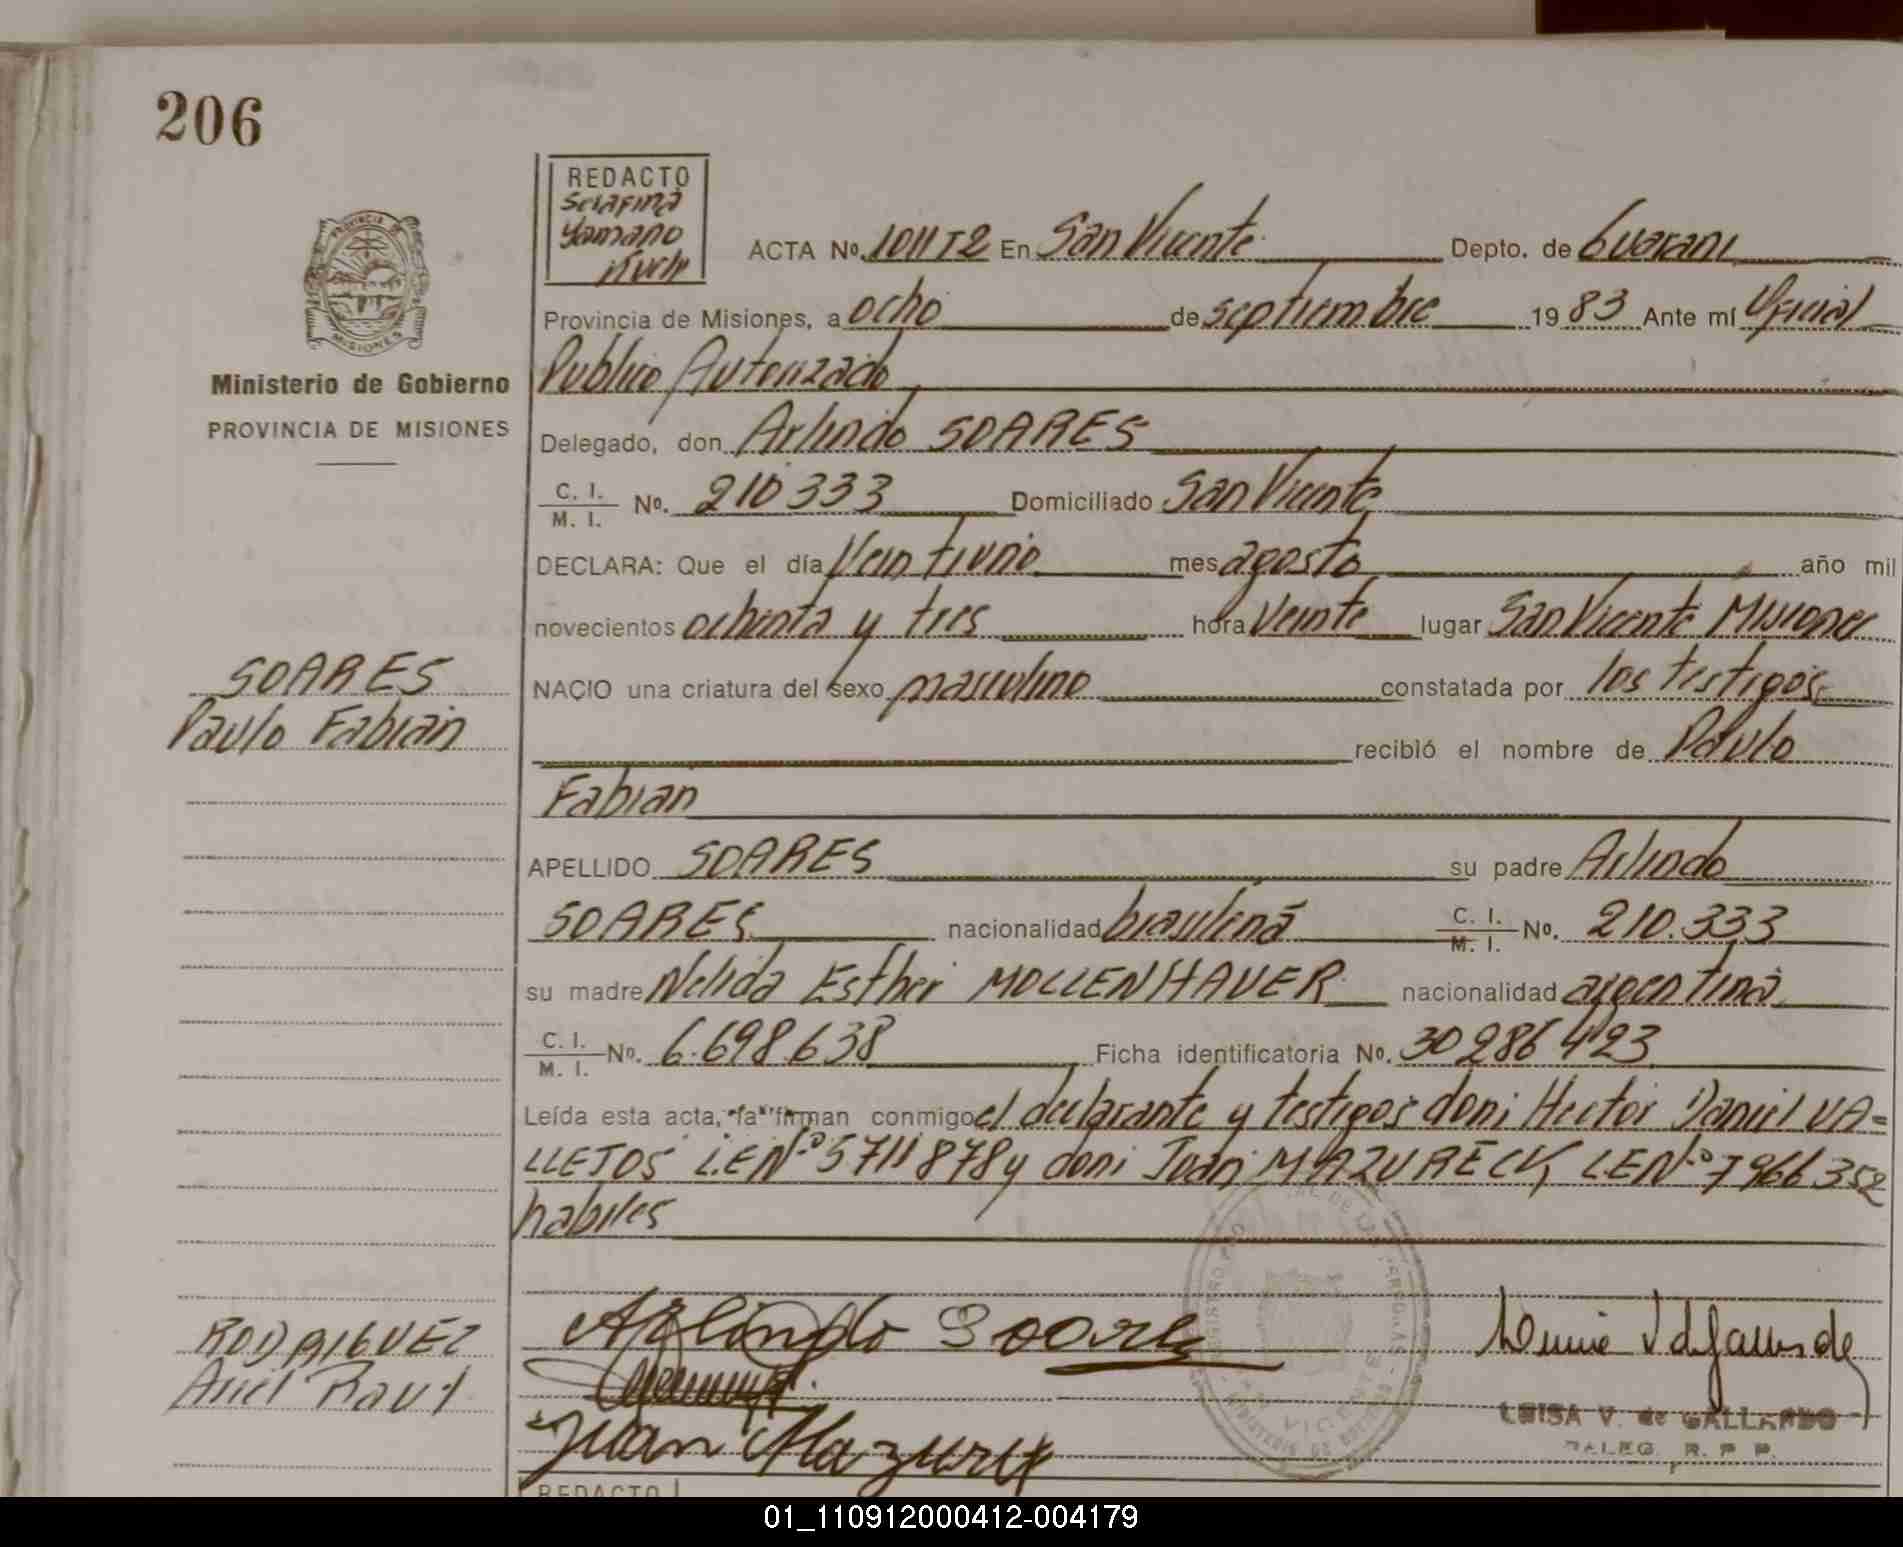 206
REDACTO
Serafina
Yamano
PROVINCIA DE
MISIONES
Ministerio de Gobierno
PROVINCIA DE MISIONES
ACTA No. 1011 T2 En San Vicente Depto. de Guarani
Provincia de Misiones, a ocho de septiembre 1983 Ante mí Oficial
Publico Autorizado
Delegado, don Arlindo SOARES
C. I.
M. I. No. 210 333 Domiciliado San Vicente
DECLARA: Que el día Veintiuno mes agosto año mil
novecientos ochenta y tres hora Veinte lugar San Vicente Misiones
SOARES
Paulo Fabian
NACIO una criatura del sexo masculino constatada por los testigos
recibió el nombre de Paulo
Fabian
APELLIDO SOARES su padre Arlindo
SOARES nacionalidad brasileña C. I.
M. I. No. 210.333
su madre Nelida Esther MOLLENHAUER nacionalidad argentina
C. I.
M. I. No. 6.698.638 Ficha identificatoria No. 30 286 423
Leída esta acta, la firman conmigo el declarante y testigos don: Hector Daniel VA=
LLEJOS L.E.Nº 5711878 y don: Juan MAZURECK, L.E.Nº 7966352
habiles
RODRIGUEZ
Ariel Raul
Arlindo Soares
Juan Mazurek
SAN VICENTE
LUISA V. de GALLARDO
DELEG. R. P. P.
REDACTO
01_110912000412-004179